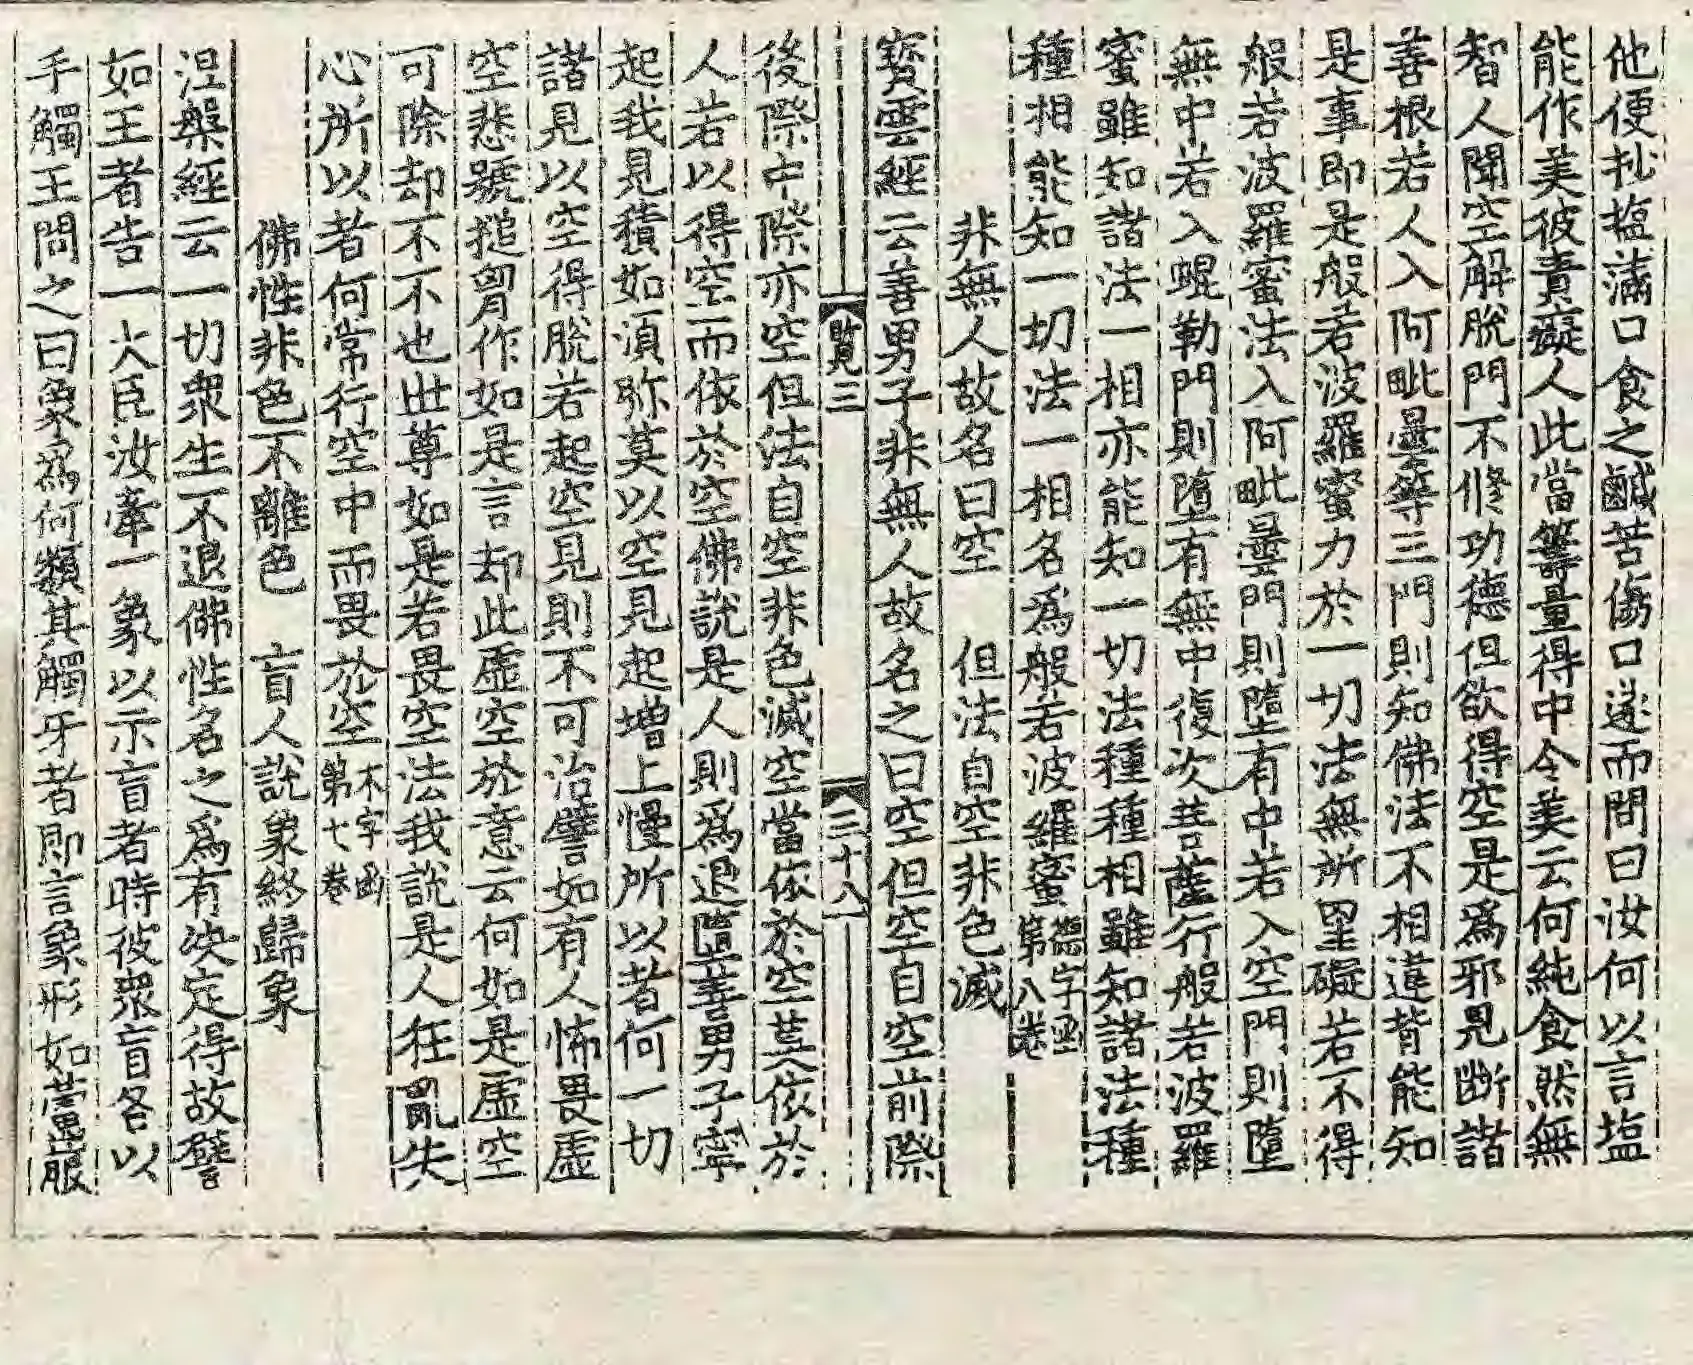 他便抄塩滿口食之鹹苦傷口遂而問曰汝何以言塩
能作美彼責癡人此當籌量得中令美云何純食然無
智人聞空解脫門不修功德但欲得空是爲邪見斷諸
善根若人入阿毗曇等三門則知佛法不相違背能知
是事即是般若波羅蜜力於一切法無所罣礙若不得
般若波羅蜜法入阿毗曇門則墮有中若入空門則墮
無中若入蜫勒門則墮有無中復次菩薩行般若波羅
蜜雖知諸法一相亦能知一切法種種相雖知諸法種
種相能知一切法一相名爲般若波羅蜜第八卷
非無人故名曰空 但法自空非色滅
寶雲經云善男子非無人故名之曰空但空自空前際
覽三 三十八
後際中際亦空但法自空非色滅空當依於空莫依於
人若以得空而依於空佛說是人則爲退墮善男子寧
起我見積如湏弥莫以空見起增上慢所以者何一切
諸見以空得脫若起空見則不可治譬如有人怖畏虛
空悲號搥胷作如是言却此虛空於意云何如是虛空
可除却不不也世尊如是若畏空法我說是人狂亂失
心所以者何常行空中而畏於空不字函第七卷
佛性非色不離色 盲人說象終歸象
涅槃經云一切衆生不退佛性名之爲有決定得故譬
如王者告一大臣汝牽一象以示盲者時彼衆盲各以
手觸王問之曰象爲何類其觸牙者即言象形如蘆菔